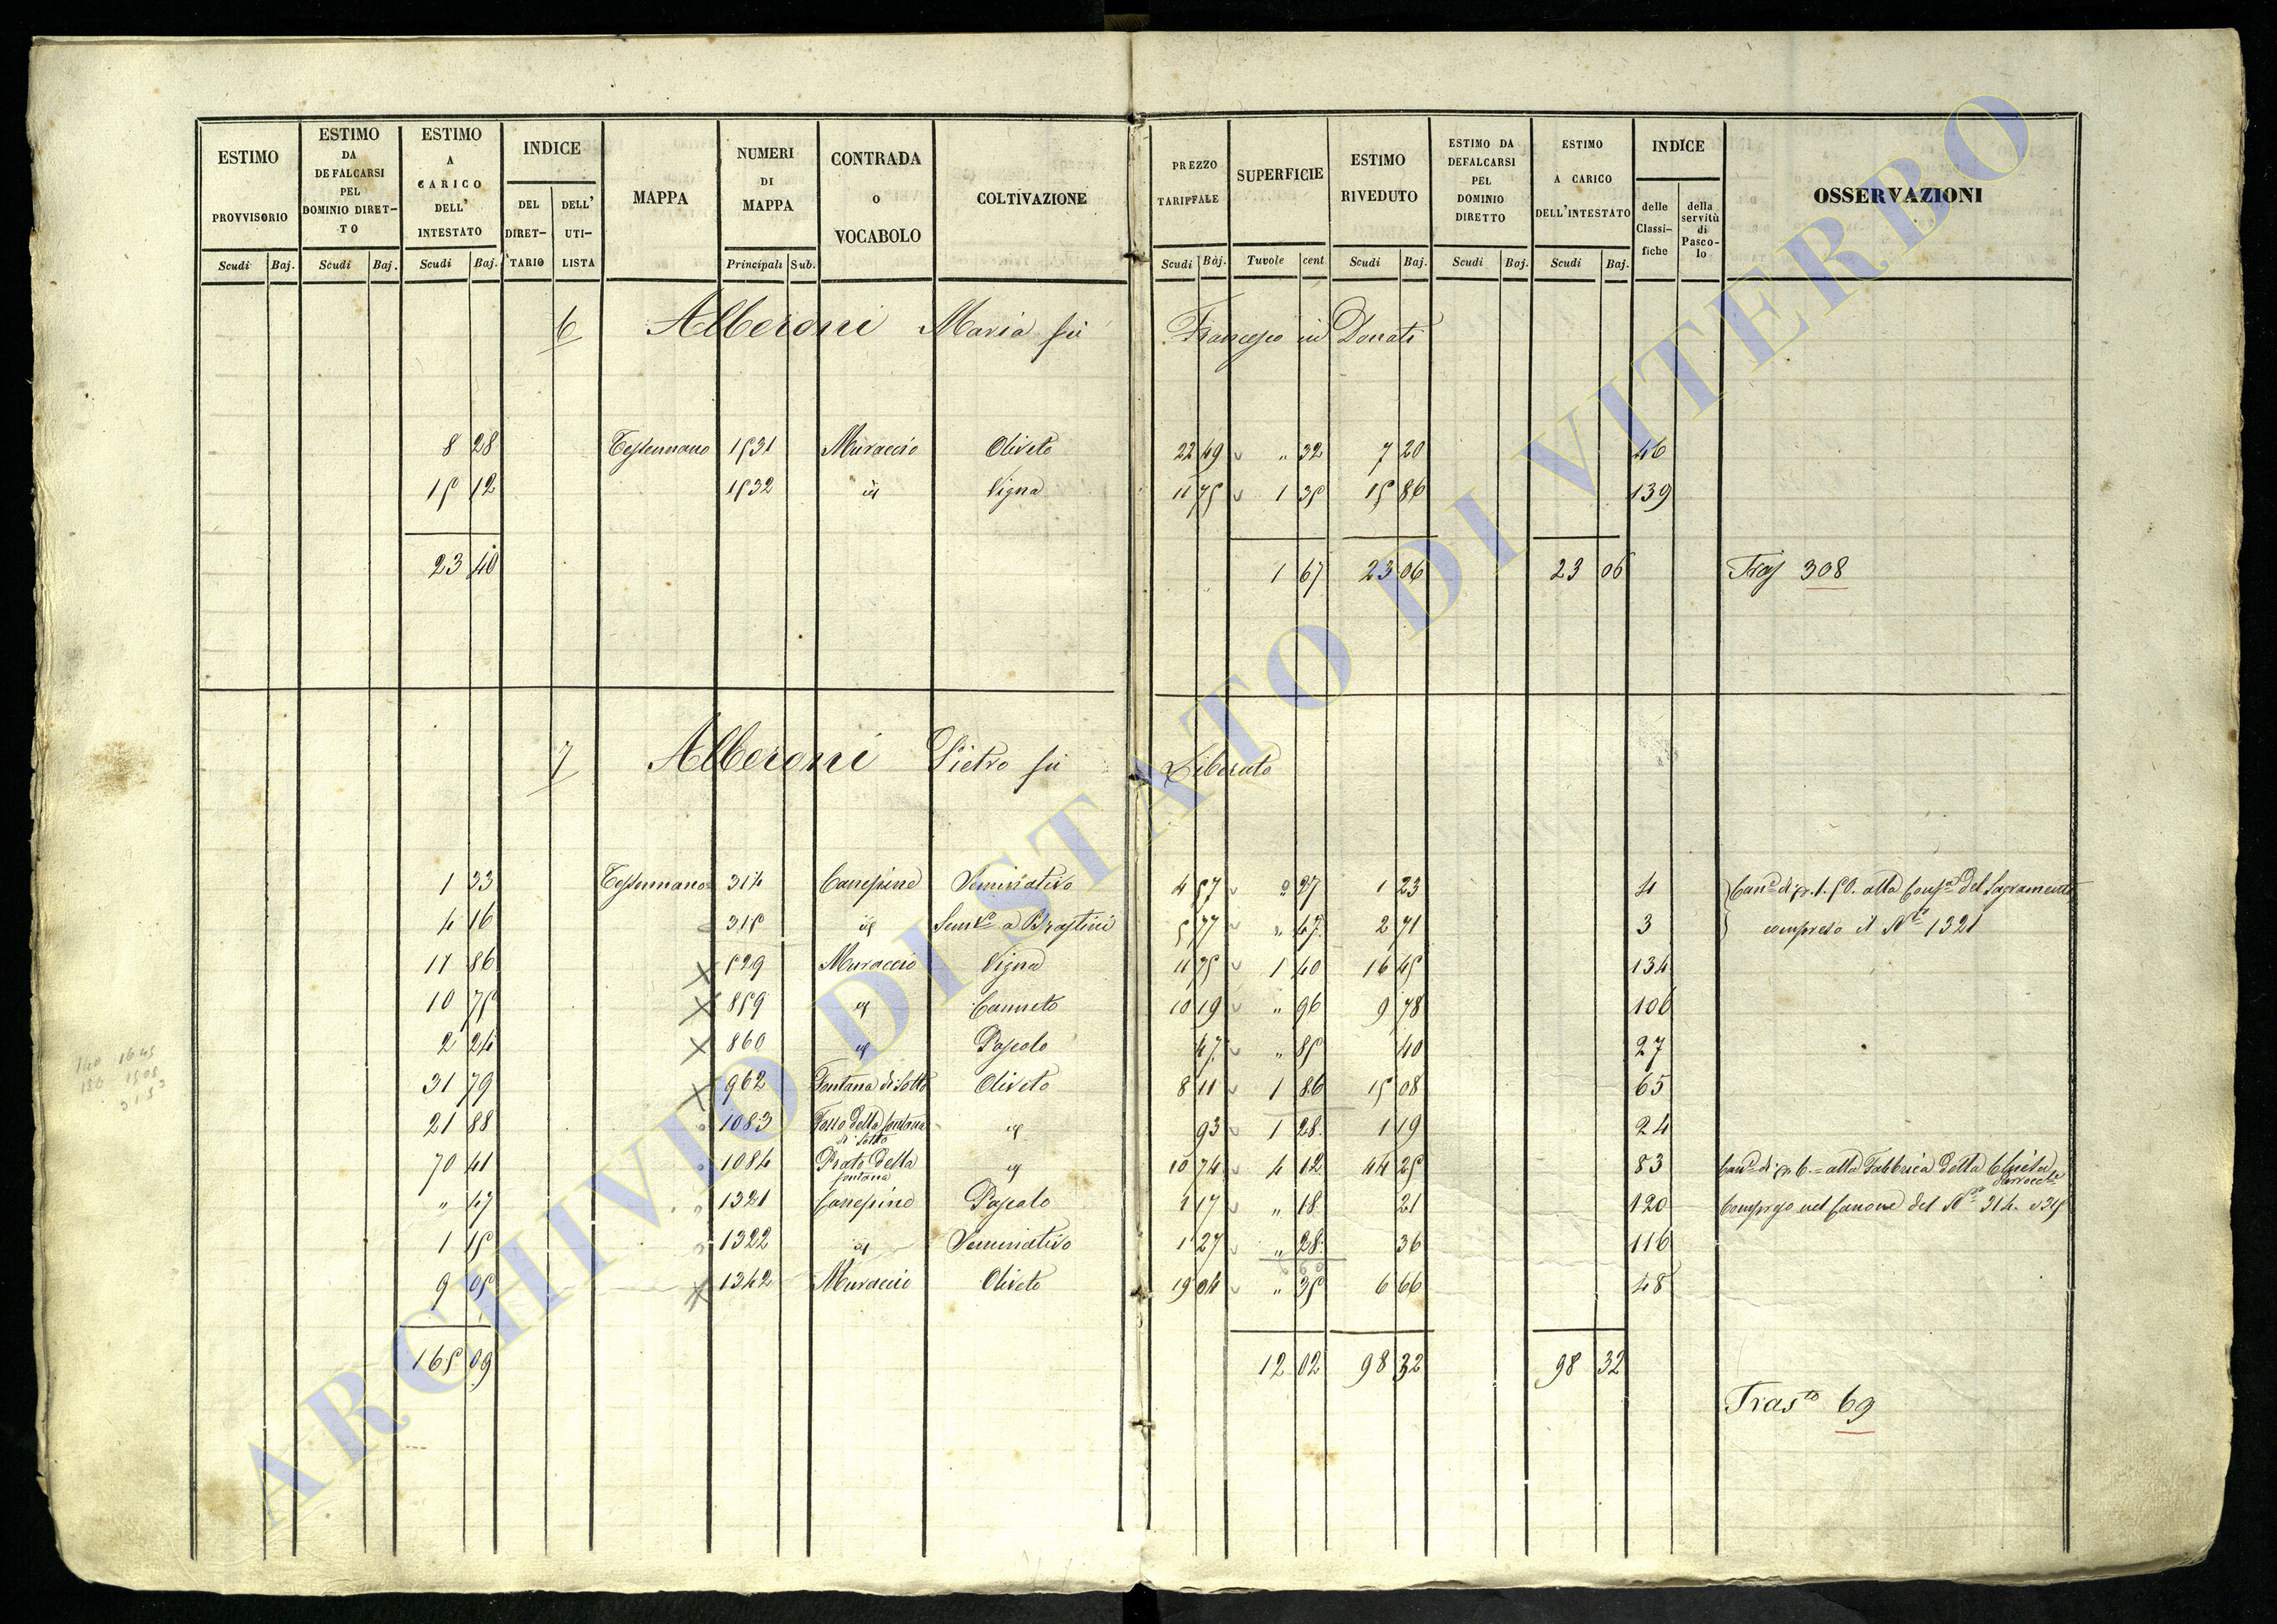 ESTIMO PROVVISORIO Scudi Baj.
ESTIMO DA DEFALCARSI PEL DOMINIO DIRET-TO Scudi Baj.
ESTIMO A CARICO DELL' INTESTATO Scudi Baj.
INDICE DEL DIRET-TARIO DELL' UTI-LISTA
MAPPA
NUMERI DI MAPPA Principali Sub.
CONTRADA o VOCABOLO
COLTIVAZIONE
PREZZO TARIFFALE Scudi Baj.
SUPERFICIE Tavole cent.
ESTIMO RIVEDUTO Scudi Baj.
ESTIMO DA DEFALCARSI PEL DOMINIO DIRETTO Scudi Baj.
ESTIMO A CARICO DELL'INTESTATO Scudi Baj.
INDICE delle Classi-fiche della servitù di Pasco-lo
OSSERVAZIONI
6 Alberoni Maria fù Francesco in Donati
8 28 Tessennano 1531 Muraccio Oliveto 22 49 " 32 7 20 46
15 12 1532 id Vigna 11 75 1 35 15 86 139
23 40 1 67 23 06 23 06 Tras 308
7 Alberoni Pietro fù Liberato
1 33 Tessennano 314 Canepine Seminativo 4 57 0 27 1 23 4 Can.e di sc. 1.50. alla Comp.a del Sagramento
4 16 315 id Sem.vo a Prastini 5 77 " 47 2 71 3 compreso il N.ro 1321
11 86 529 Muraccio Vigna 11 75 1 40 16 45 134
10 75 859 id Canneto 10 19 " 96 9 78 106
2 24 860 id Pascolo 47 " 85 40 27
31 79 962 Fontana di sotto Oliveto 8 11 1 86 15 08 65
21 88 1083 Fosso della fontana di sotto id 93 1 28 1 19 24
70 41 1084 Prato della fontana id 10 74 4 12 44 25 83 Can.e di sc. 6.= alla Fabbrica della Chiesa Parrocc.le
" 47 1321 Canepine Pascolo 1 17 " 18 21 120 Compreso nel Canone del N.ro 314. e 315
1 15 1322 id Seminativo 1 27 " 28 36 116
9 05 1342 Muraccio Oliveto 19 04 " 35 6 66 48
165 09 12 02 98 32 98 32
Tras.to 69
140 16 45
186 15 08
31 53
ARCHIVIO DI STATO DI VITERBO